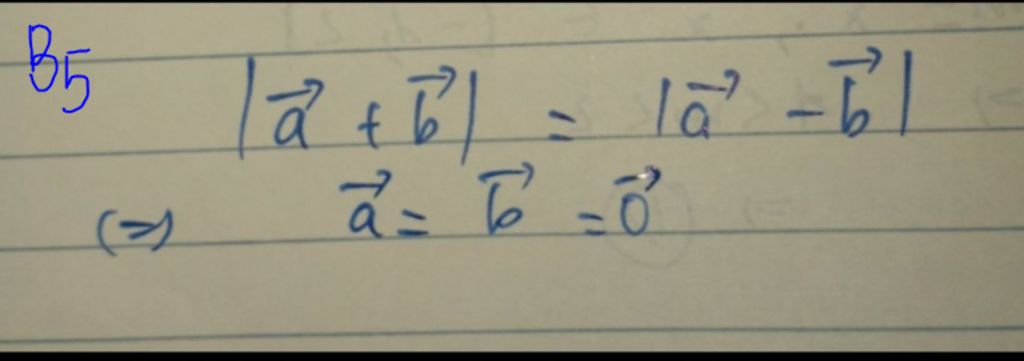 B5
|a⃗ + b⃗| = |a⃗ - b⃗|
(=) a⃗ = b⃗ = 0⃗